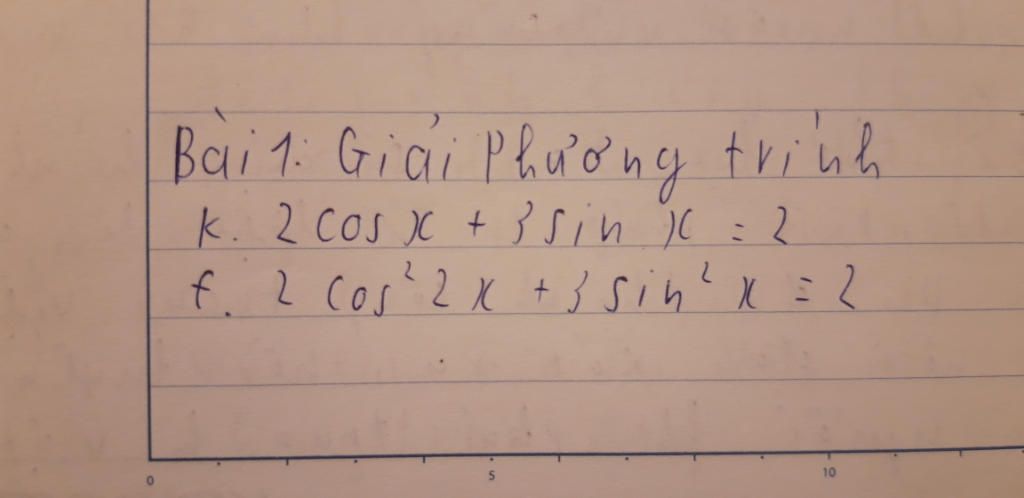 Bài 1: Giải Phương trình
k. 2 cos x + 3 sin x = 2
f. 2 cos² 2x + 3 sin² x = 2
0 5 10